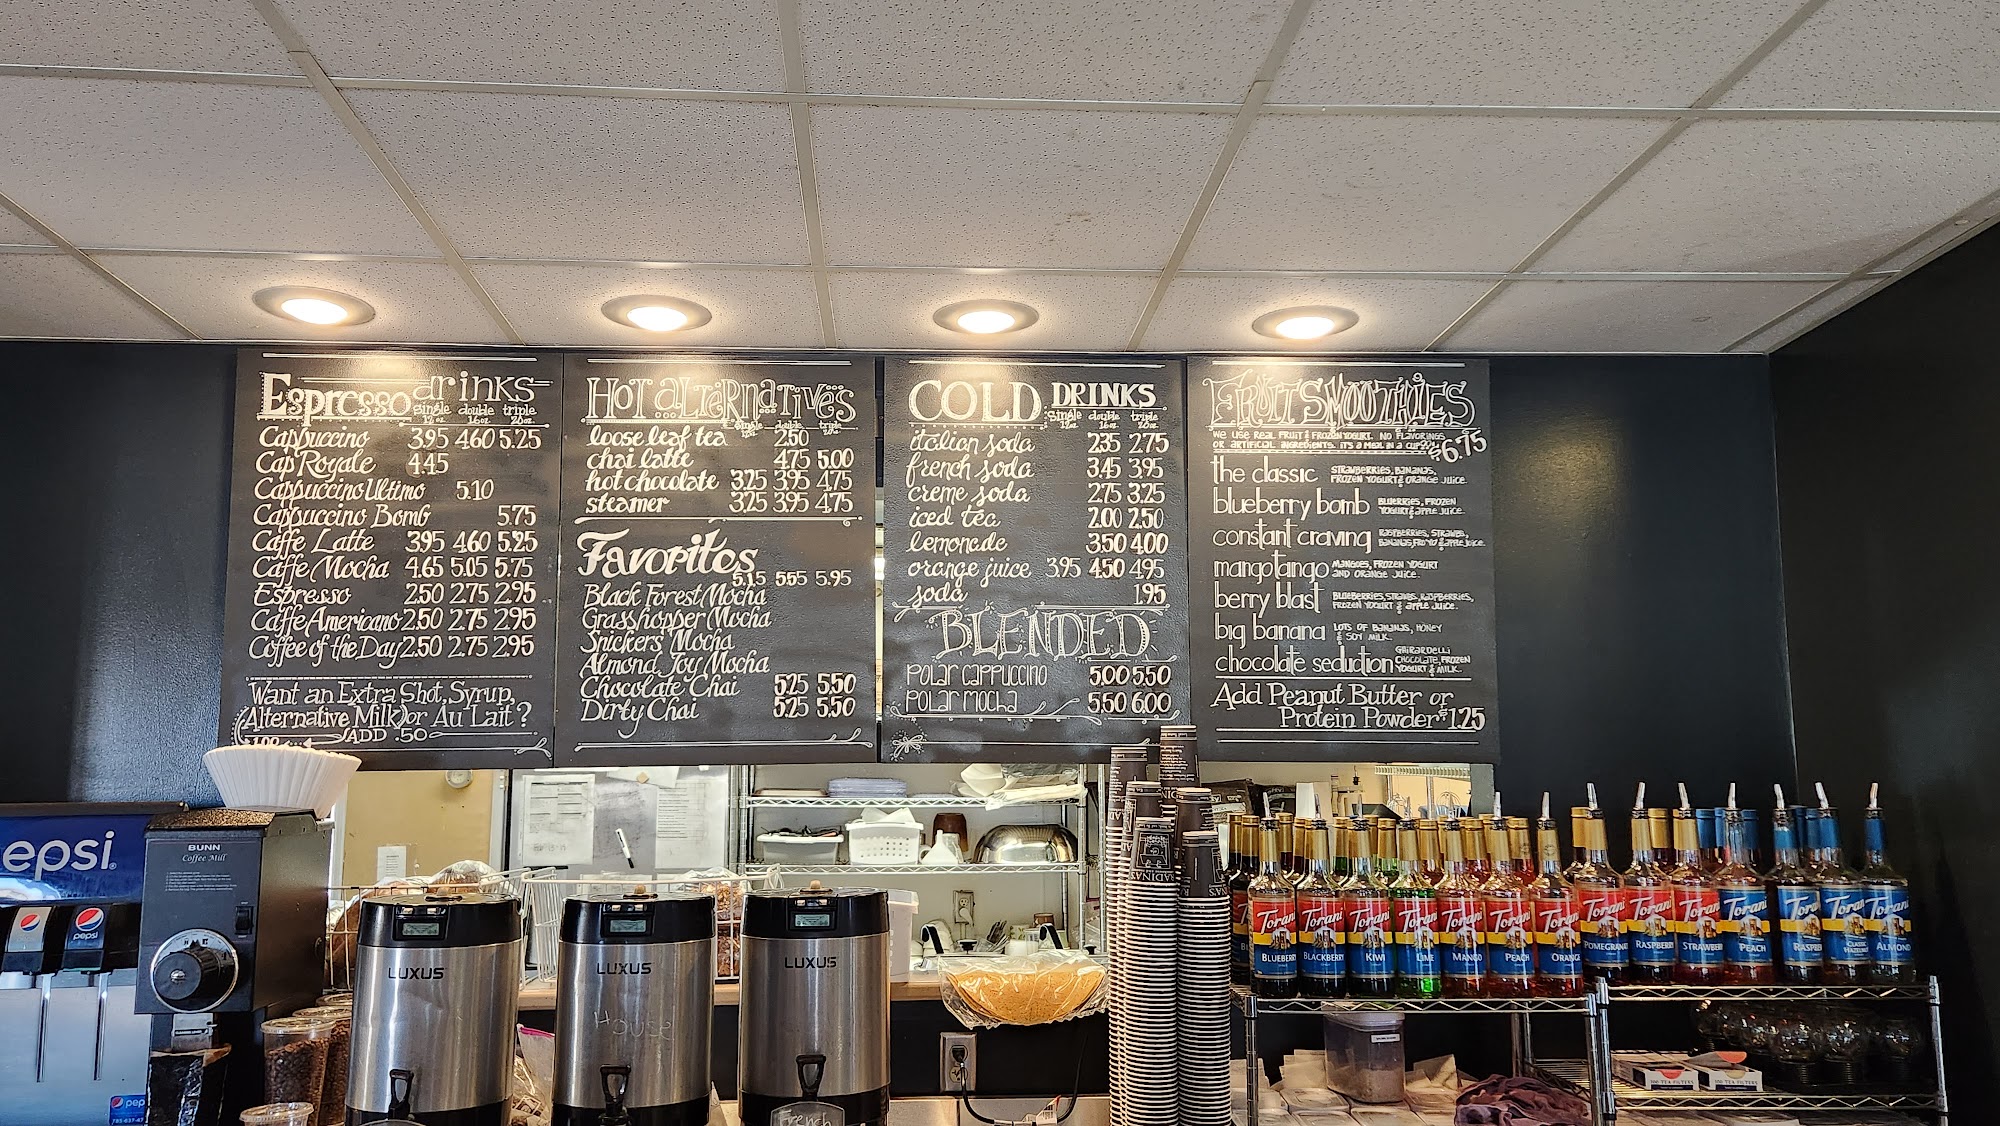 Espresso drinks
single double triple
12oz 16oz 20oz
Cappuccino 3.95 4.60 5.25
Cap Royale 4.45
Cappuccino Ultimo 5.10
Cappuccino Bomb 5.75
Caffe Latte 3.95 4.60 5.25
Caffe Mocha 4.65 5.05 5.75
Espresso 2.50 2.75 2.95
Caffe Americano 2.50 2.75 2.95
Coffee of the Day 2.50 2.75 2.95
Want an Extra Shot, Syrup,
(Alternative Milk) or Au Lait?
ADD .50
Hot Alternatives
single double triple
loose leaf tea 2.50
chai latte 4.75 5.00
hot chocolate 3.25 3.95 4.75
steamer 3.25 3.95 4.75
Favorites
5.15 5.55 5.95
Black Forest Mocha
Grasshopper Mocha
Snickers Mocha
Almond Joy Mocha
Chocolate Chai 5.25 5.50
Dirty Chai 5.25 5.50
COLD DRINKS
single double triple
12oz 16oz 20oz
italian soda 2.35 2.75
french soda 3.45 3.95
creme soda 2.75 3.25
iced tea 2.00 2.50
lemonade 3.50 4.00
orange juice 3.95 4.50 4.95
soda 1.95
BLENDED
polar cappuccino 5.00 5.50
polar mocha 5.50 6.00
FRUIT SMOOTHIES
WE USE REAL FRUIT & FROZEN YOGURT. NO FLAVORINGS
OR ARTIFICIAL INGREDIENTS. IT'S A MEAL IN A CUP
$6.75
the classic STRAWBERRIES, BANANAS,
FROZEN YOGURT & ORANGE JUICE.
blueberry bomb BLUEBERRIES, FROZEN
YOGURT & APPLE JUICE.
constant craving RASPBERRIES, STRAWB.,
BANANAS, FROYO & APPLE JUICE.
mangotango MANGOES, FROZEN YOGURT
AND ORANGE JUICE.
berry blast BLUEBERRIES, STRAWBS, RASPBERRIES,
FROZEN YOGURT & APPLE JUICE.
big banana LOTS OF BANANAS, HONEY
& SOY MILK.
chocolate seduction GHIRARDELLI
CHOCOLATE, FROZEN
YOGURT & MILK.
Add Peanut Butter or
Protein Powder $1.25
epsi
pepsi
pep
BUNN
Coffee Mill
LUXUS
LUXUS
House
LUXUS
French
Torani
BLUEBERRY
Torani
BLACKBERRY
Torani
KIWI
Torani
LIME
Torani
MANGO
Torani
PEACH
Torani
ORANGE
Torani
POMEGRANATE
Torani
RASPBERRY
Torani
STRAWBERRY
Torani
PEACH
Torani
RASPBE
Torani
CLASSIC
HAZELNUT
Torani
ALMOND
100 TEA FILTERS
100 TEA FILTERS